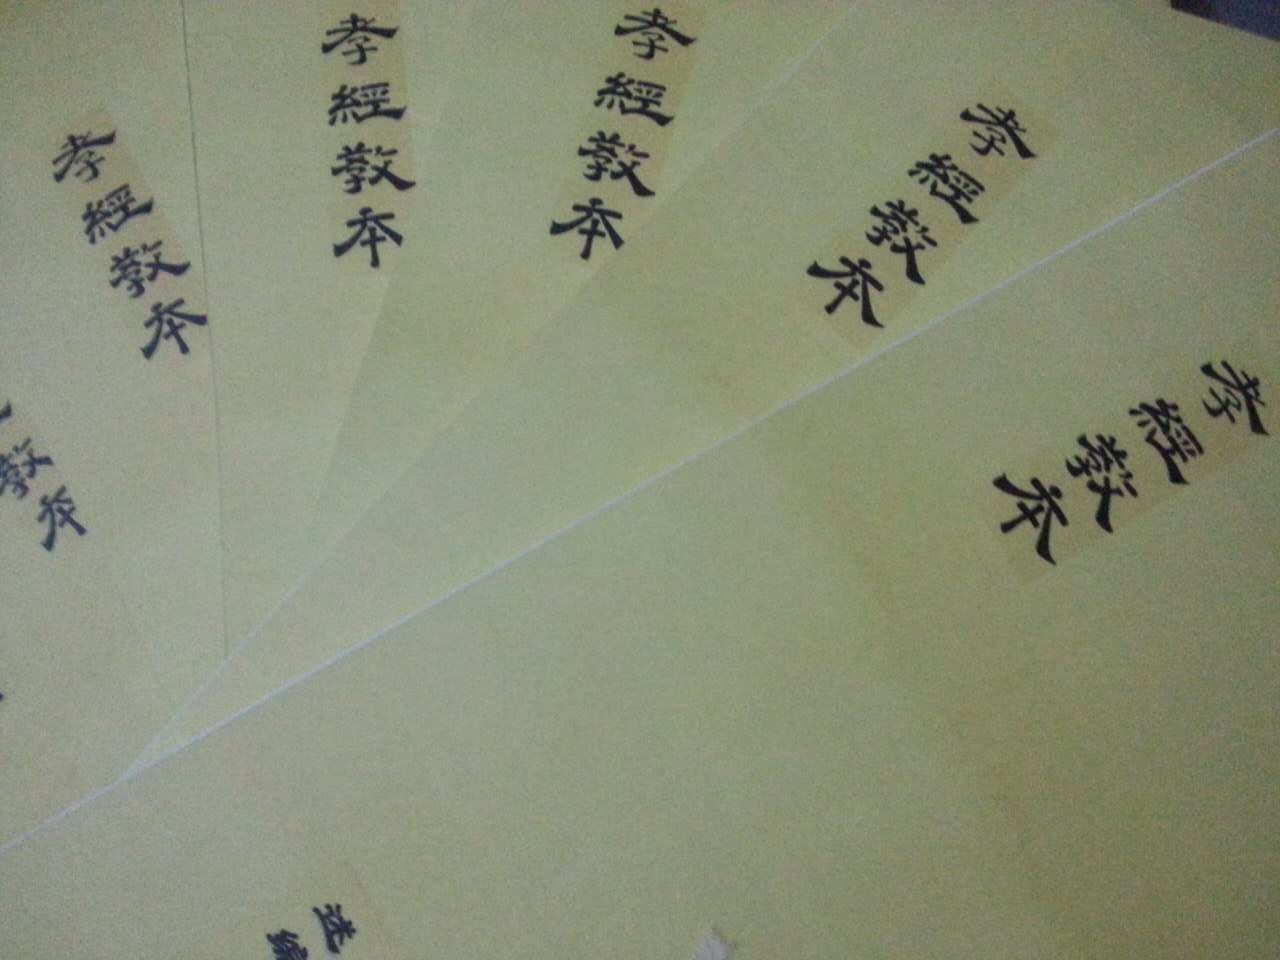 孝經教本
孝經教本
孝經教本
孝經教本
孝經教本
教本